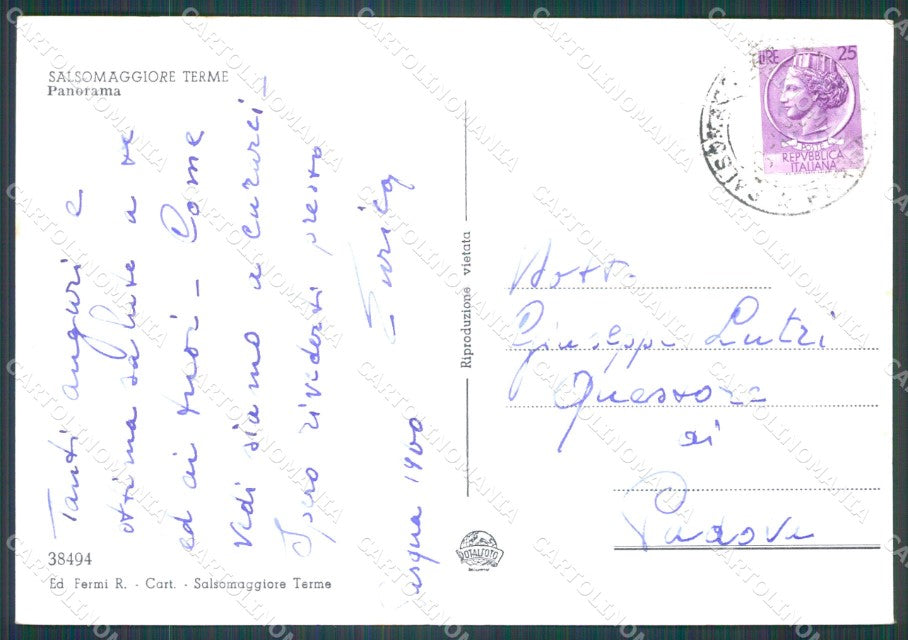 SALSOMAGGIORE TERME
Panorama
Tanti auguri e
ottima salute a te
ed ai tuoi - Come
vedi siamo a curarci -
Spero rivederti presto
Pasqua 1960
38494
Ed Fermi R. - Cart. - Salsomaggiore Terme
Riproduzione vietata
LIRE 25
REPVBBLICA
ITALIANA
Dott.
Giuseppe Lutri
Questore
di
Padova
CARTOLINOMANIA